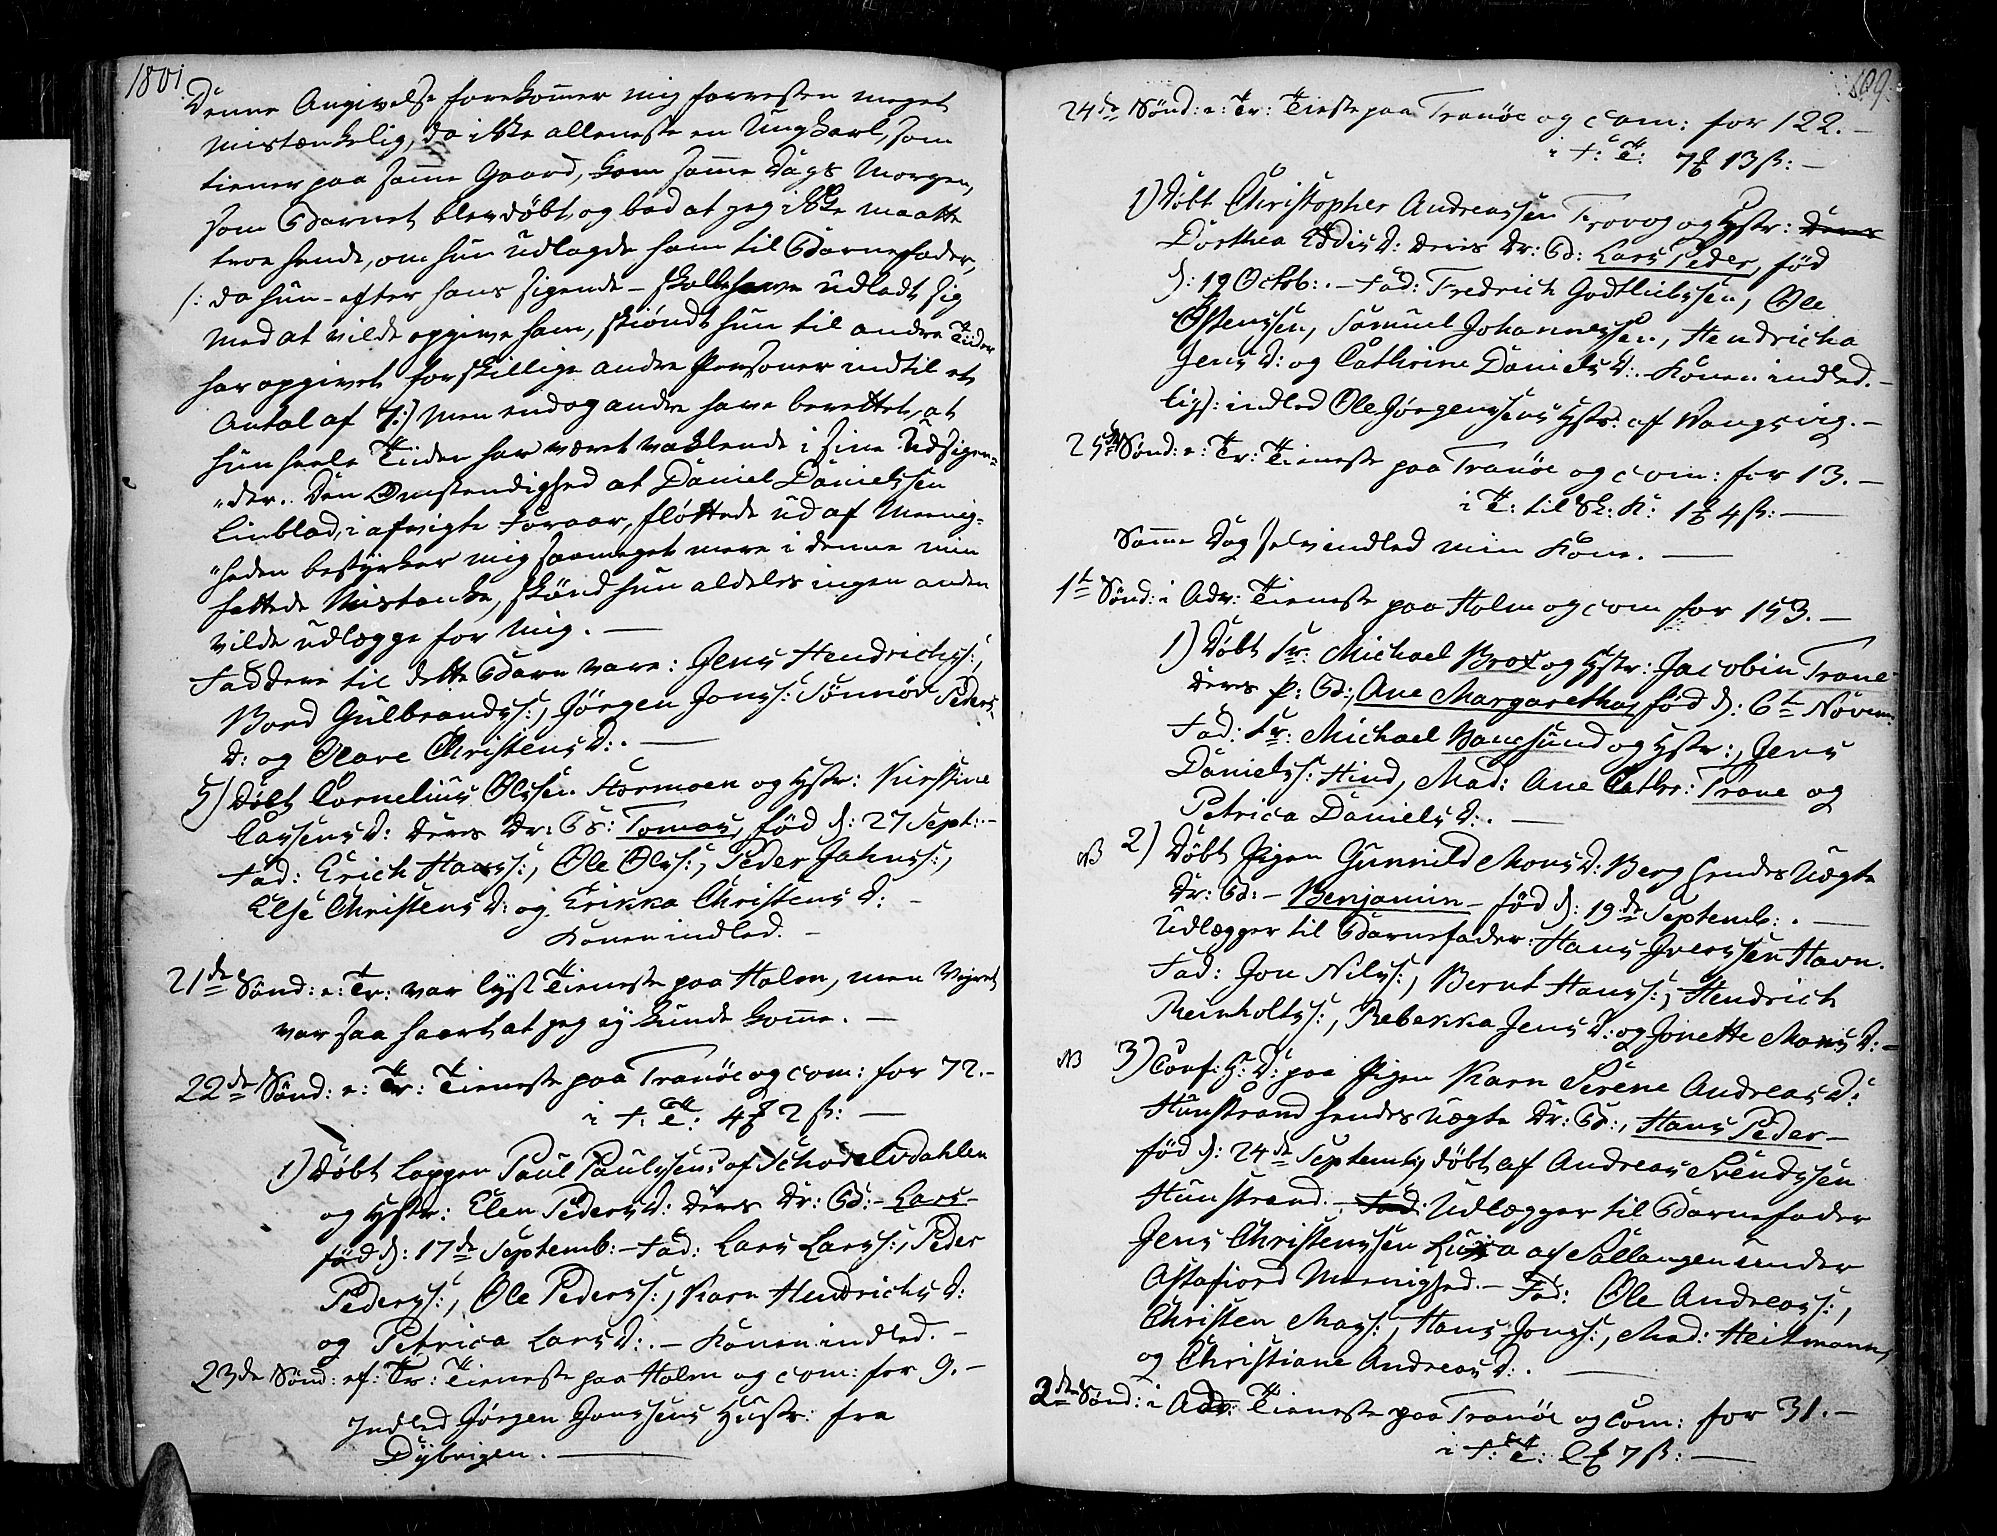 1801.
Denne Angivelse forekom̄er mig forresten meget
mistænkelig, da ikke alleneste en Ungkarl, som
tiener paa sam̄e Gaard, kom sam̄e Dags Morgen,
som Barnet blev døbt, og bad at jeg ikke maatte
troe hende, om hun udlagde ham til Barnefader,
/: da hun - efter hans sigende - skulle have udladt sig
med at vilde opgive ham, skiøndt hun til andre Tiider
har opgivet forskillige andre Personer indtil et
Antal af 7:/ men endog andre have berettet, at
hun heele Tiiden har været vaklende i sine Udsigen-
"der. Den Omstendighed at Daniel Danielssen
Linblad, i afvigte Foraar, fløttede ud af Meenig-
"heden bestyrker mig saameget mere i denne min
fattede Mistanke, skønd hun aldeles ingen anden
vilde udlægge for mig. —
Faddere til dette Barn vare: Jens Hendrichs:,
Bord Gulbrands:, Jørgen Jons: Sønnøv Peders
D: og Olave Christens D:. —
5) Døbt Cornelius Olssen Stormoen og Hstr: Kirstine
Cassens D: deres Dr: B: Tomas, fød d: 27 Sept: -
Fad: Erich Hans:, Ole Ols:, Peder Jahns:,
Else Christens D: og Erikka Christens D: -
Konen indled. -
21de Sønd: e: Tr: var lyst Tieneste paa Holm, men Vejret
var saa haart at jeg ej kunde kom̄e. —
22de Sønd: e: Tr: Tieneste paa Tranøe og com: for 72. -
i F: T: 4 ℔ 2 ß: —
1) Døbt Lappen Paul Paulssens af Schodelvdahlen
og Hstr: Elen Peders D: deres Dr: B: - Lars -
fød d: 17de Septemb: - Fad: Lars Lars:, Peder
Peders:, Ole Peders:, Karn Hendrichs D:
og Petrica Lars D:. - Konen indled. -
23de Sønd: ef: Tr: Tieneste paa Holm og com: for 9. -
Indled Jørgen Jonssens Hustr: fra
Dybvigen. —
109.
24de Sønd: e: Tr: Tieneste paa Tranøe og com: for 122. -
i F: T: 7 ℔ 13 ß: -
1) Døbt Christopher Andreassen Trovog og Hstr: deres
Dorthea Eddis D: deres Dr: B: Lars Peder, fød
d: 19 Octob: - Fad: Fredrich Godtliebssen, Ole
Ostenssen, Samuel Johannessen, Hendricha
Jens D: og Cathrine Daniels D:. Konen indled. -
lig: indled Ole Jørgenssens Hstr: af Vangsvig. -
25de Sønd: e: Tr: Tieneste paa Tranøe og com: for 13. -
i T: til Sk: K: 1 ℔ 4 ß: —
Sam̄e Dag selv indled min Kone. —
1te Sønd: i Adv: Tieneste paa Holm og com for 153. -
1) Døbt Sr: Michael Brox og Hstr: Jacobin Trane
deres P: B:, Ane Margaretha, fød d: 6te Novem:
Fad: Sr: Michael Hansund og Hstr:, Jens
Daniels: Hind, Mad: Ane Cathr: Trane og
Petrica Daniels D:. —
NB 2) Døbt Pigen Gunnild Mons D: Berg hendes Uægte
Dr: B: - Benjamin - fød d: 19de Septemb:. —
Udlægger til Barnefader: Hans Iverssen Havn.
Fad: Jon Nils:, Bernt Hans:, Hendrich
Reinholts:, Rebekka Jens D: og Jonette Mons D: -
NB 3) Conf: H: D: paa Pigen Karn Serene Andreas D:
Hunstrand hendes Uægte Dr: B:, Hans Peder -
fød d: 24de Septemb, døbt af Andreas Svendssen
Hunstrand. Fad: Udlægger til Barnefader
Jens Christenssen af Sallangen under
Astafiord Meenighed. - Fad: Ole Andreas:,
Christen Mass:, Hans Jons:, Mad: Heitmann,
og Christiane Andreas D:. —
2den Sønd: i Adv: Tieneste paa Tranøe og com: for 31. -
i F: T: 2 ℔ 7 ß: —